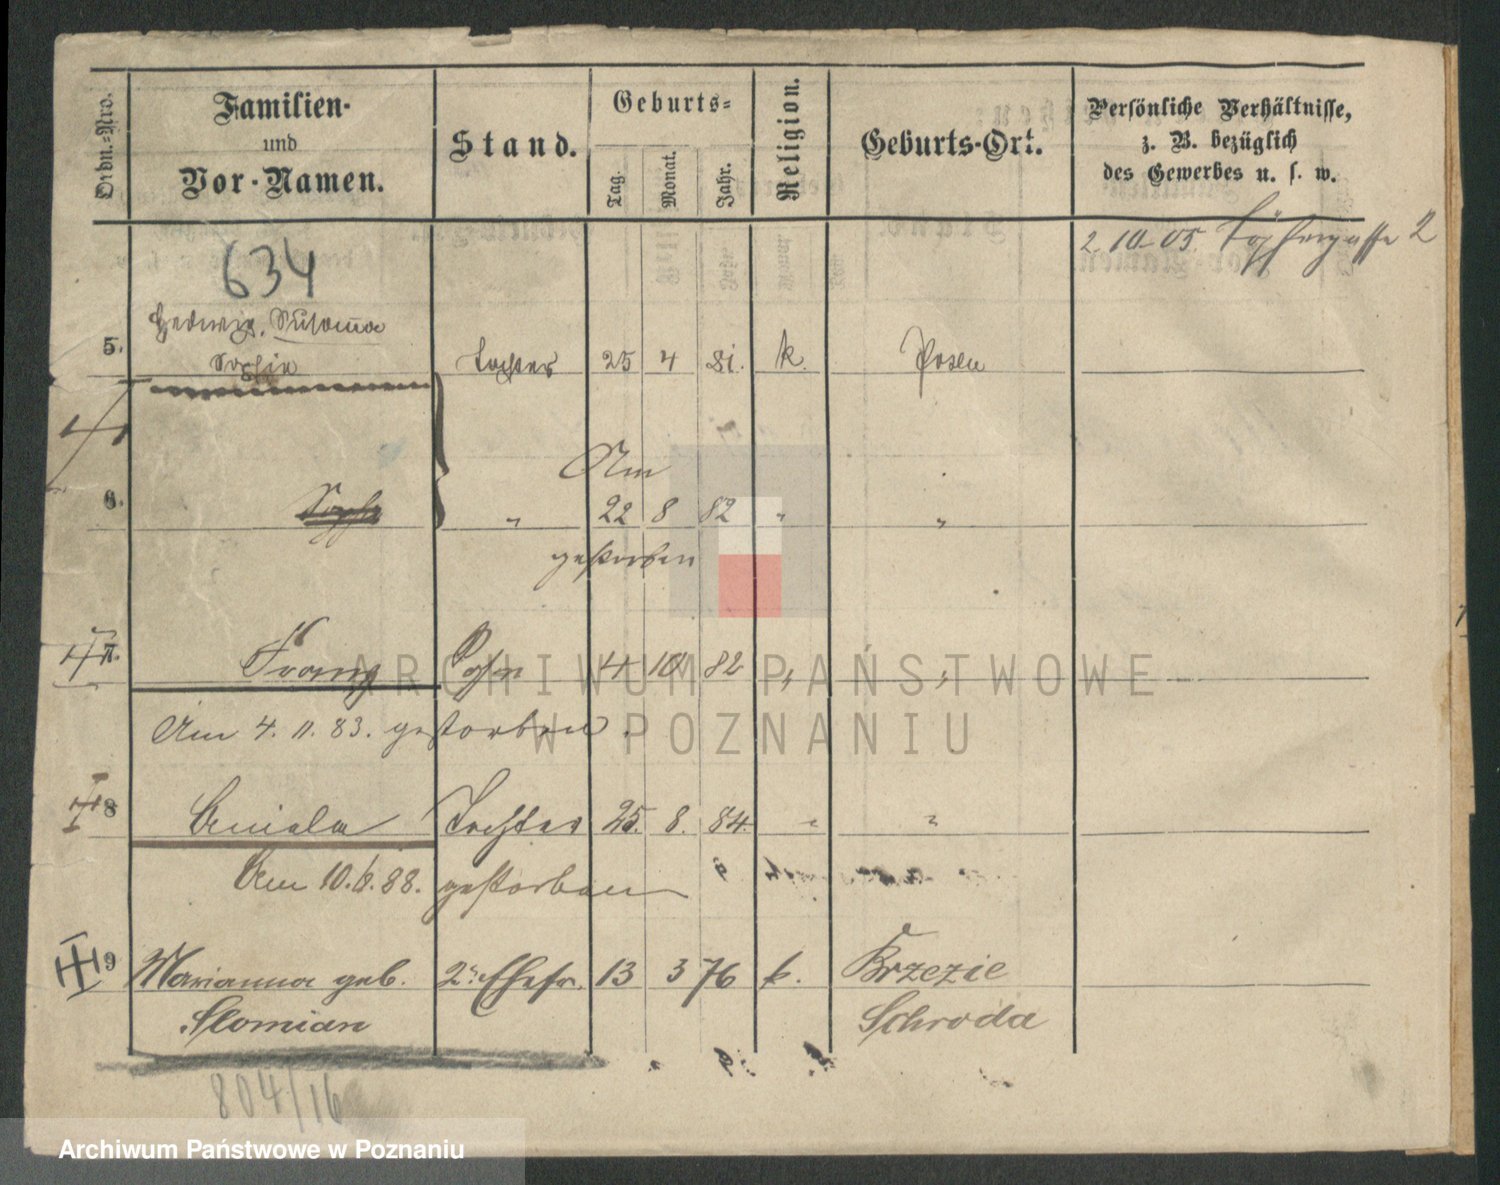 Ordn.-Nro.
Familien-
und
Vor-Namen.
Stand.
Geburts-
Tag.
Monat.
Jahr.
Religion.
Geburts-Ort.
Persönliche Verhältnisse,
z. B. bezüglich
des Gewerbes u. s. w.
2. 10. 05. Töpfergasse 2
634
Hedwig, Susanna
5. Sophie Tochter 25 4 81. k. Posen
Am
6. Sophie " 22 8 82 " "
gestorben
7. Franz Sohn 4 10 82 " "
Am 4. 11. 83. gestorben.
8 Aniela Tochter 25. 8. 84. " "
Am 10. 6. 88. gestorben
9 Marianna geb. 2te Ehefr. 13 3 76 k. Brzezie
Slomian Schroda
804/16
ARCHIWUM PAŃSTWOWE
W POZNANIU
Archiwum Państwowe w Poznaniu